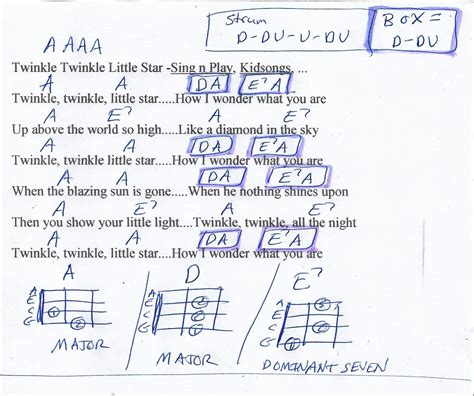 Strum
D-DU-U-DU
BOX =
D-DU
A A A A
Twinkle Twinkle Little Star -Sing n Play, Kidsongs, ...
A A DA E7A
Twinkle, twinkle, little star.....How I wonder what you are
A E7 A E7
Up above the world so high.....Like a diamond in the sky
A A DA E7A
Twinkle, twinkle little star.....How I wonder what you are
A A DA E7A
When the blazing sun is gone.....When he nothing shines upon
A E7 A E7
Then you show your little light....Twinkle, twinkle, all the night
A A DA E7A
Twinkle, twinkle, little star....How I wonder what you are
A D E7
A
E
C
G
1
2
MAJOR
A
E
C
G
2
MAJOR
A
E
C
G
DOMINANT SEVEN